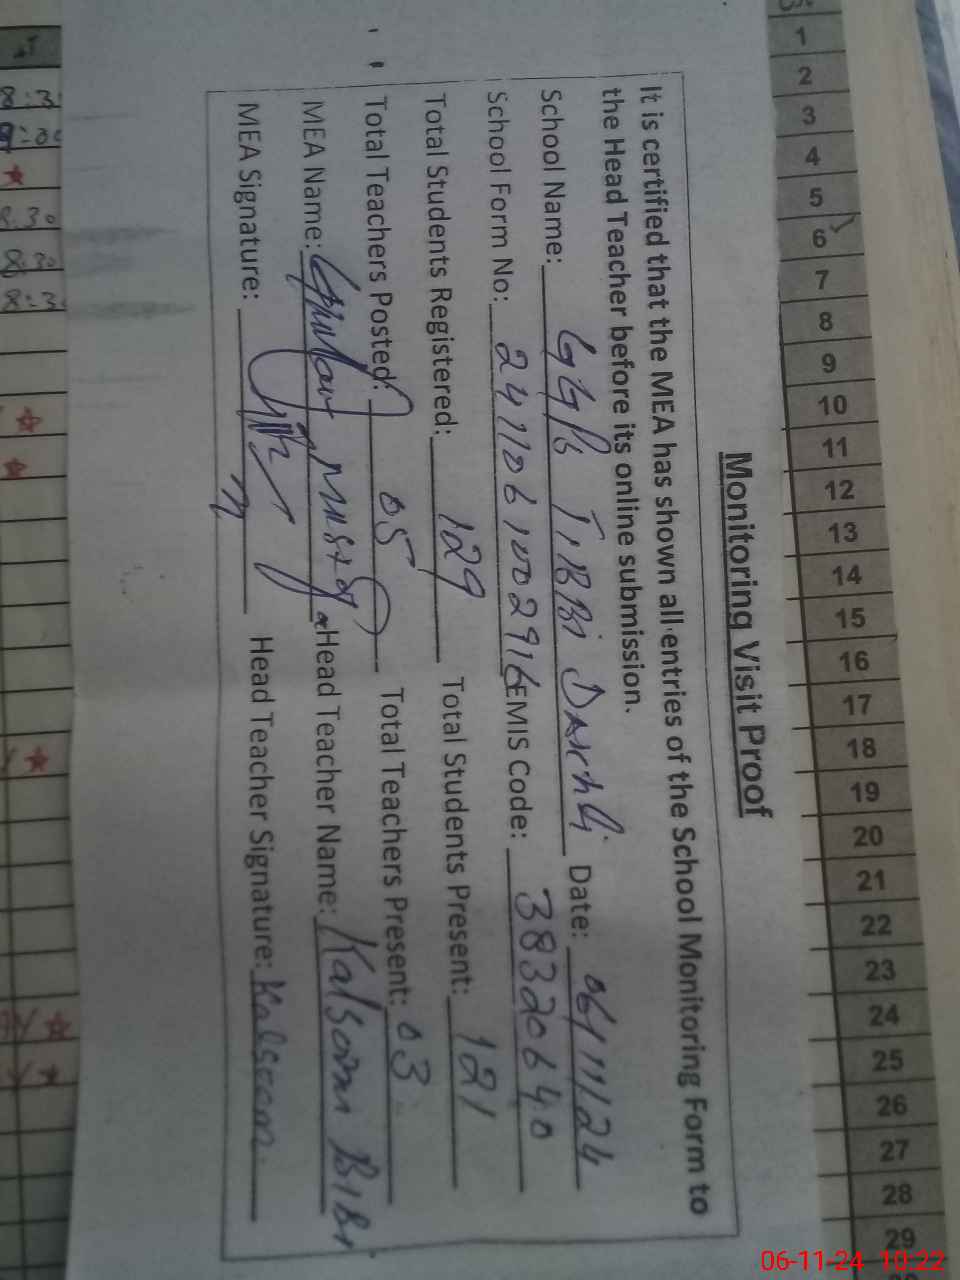 Monitoring Visit Proof
It is certified that the MEA has shown all entries of the School Monitoring Form to
the Head Teacher before its online submission.
School Name: GGPS TIBBI Date: 06/11/24
School Form No: EMIS Code: 38320640
Total Students Registered: 129 Total Students Present: 121
Total Teachers Posted: 05 Total Teachers Present: 03
MEA Name: Ghulam Mustafa Head Teacher Name: Kalsoom BiBi
MEA Signature: Head Teacher Signature: Kalsoom
1
2
3
4
5
6
7
8
9
10
11
12
13
14
15
16
17
18
19
20
21
22
23
24
25
26
27
28
29
8:30
8:30
06-11-24 10:22